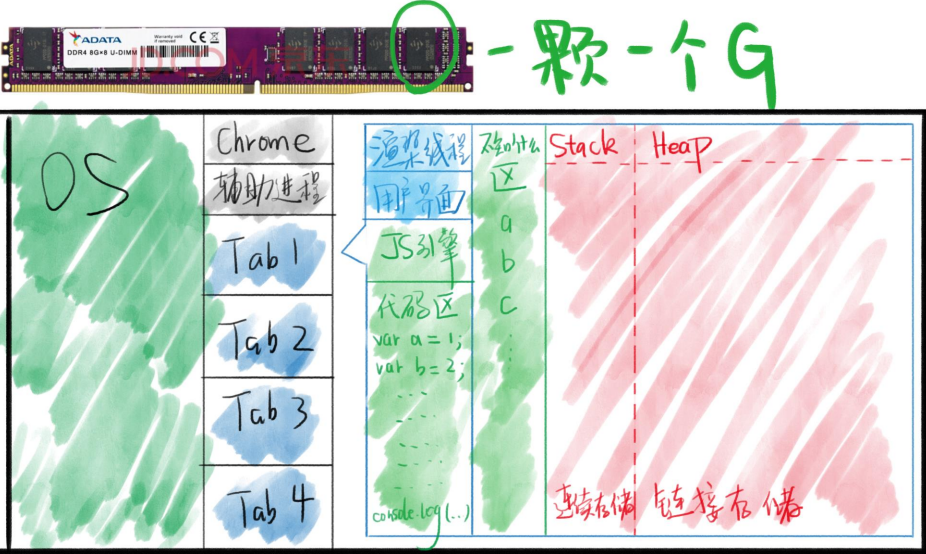 ADATA
DDR4 8G×8 U-DIMM
Warranty void
if removed
CE
JD.COM
一颗一个G
OS
Chrome
辅助进程
Tab 1
Tab 2
Tab 3
Tab 4
渲染线程
用户界面
JS引擎
代码区
var a = 1;
var b = 2;
....
....
....
....
....
console.log(..)
不知什么
区
a
b
c
Stack
连续存储
Heap
链接存储